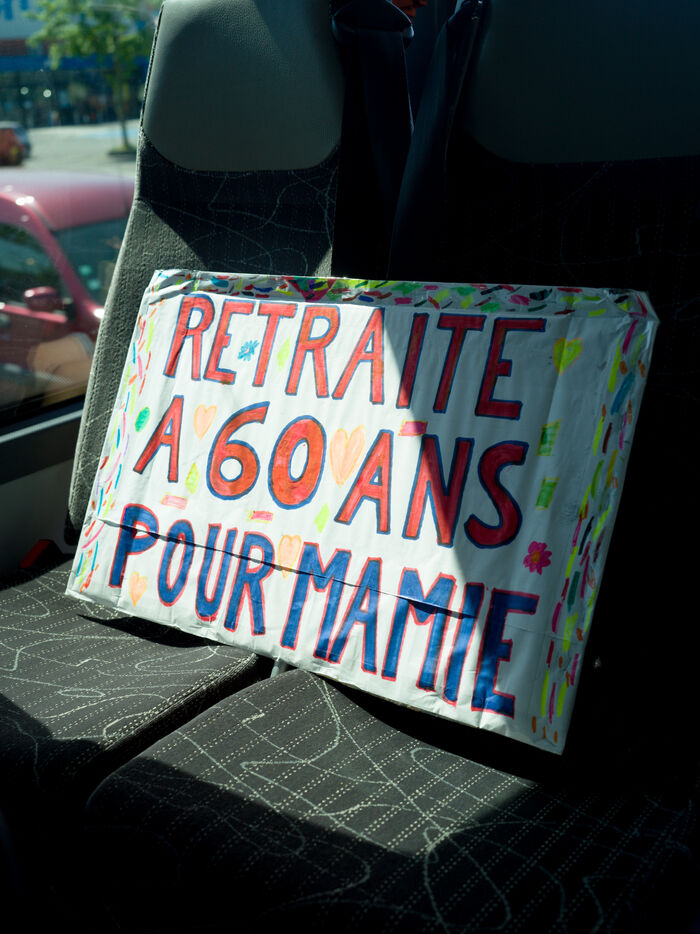 RETRAITE
A 60 ANS
POUR MAMIE